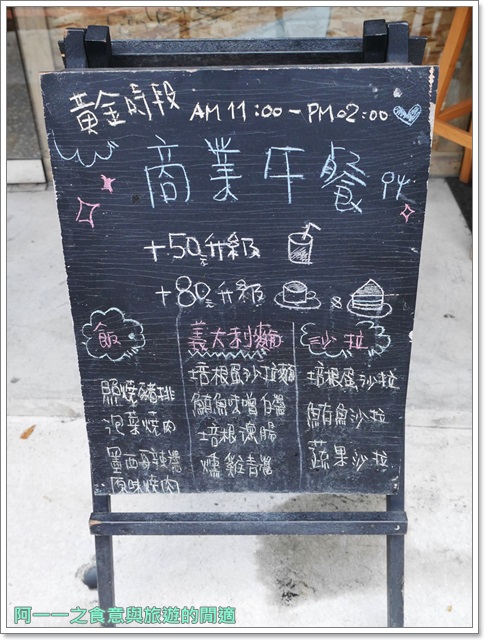 黃金時段 AM 11:00 - PM 02:00
商業午餐
+50元升級
+80元升級 &
飯
照燒豬排
泡菜燒肉
墨西哥辣醬
原味燒肉
義大利麵
培根蛋沙拉麵
鮪魚味噌白醬
培根德腸
燻雞青醬
沙拉
培根蛋沙拉
鮪魚沙拉
蔬果沙拉
阿一一之食意與旅遊的閒適